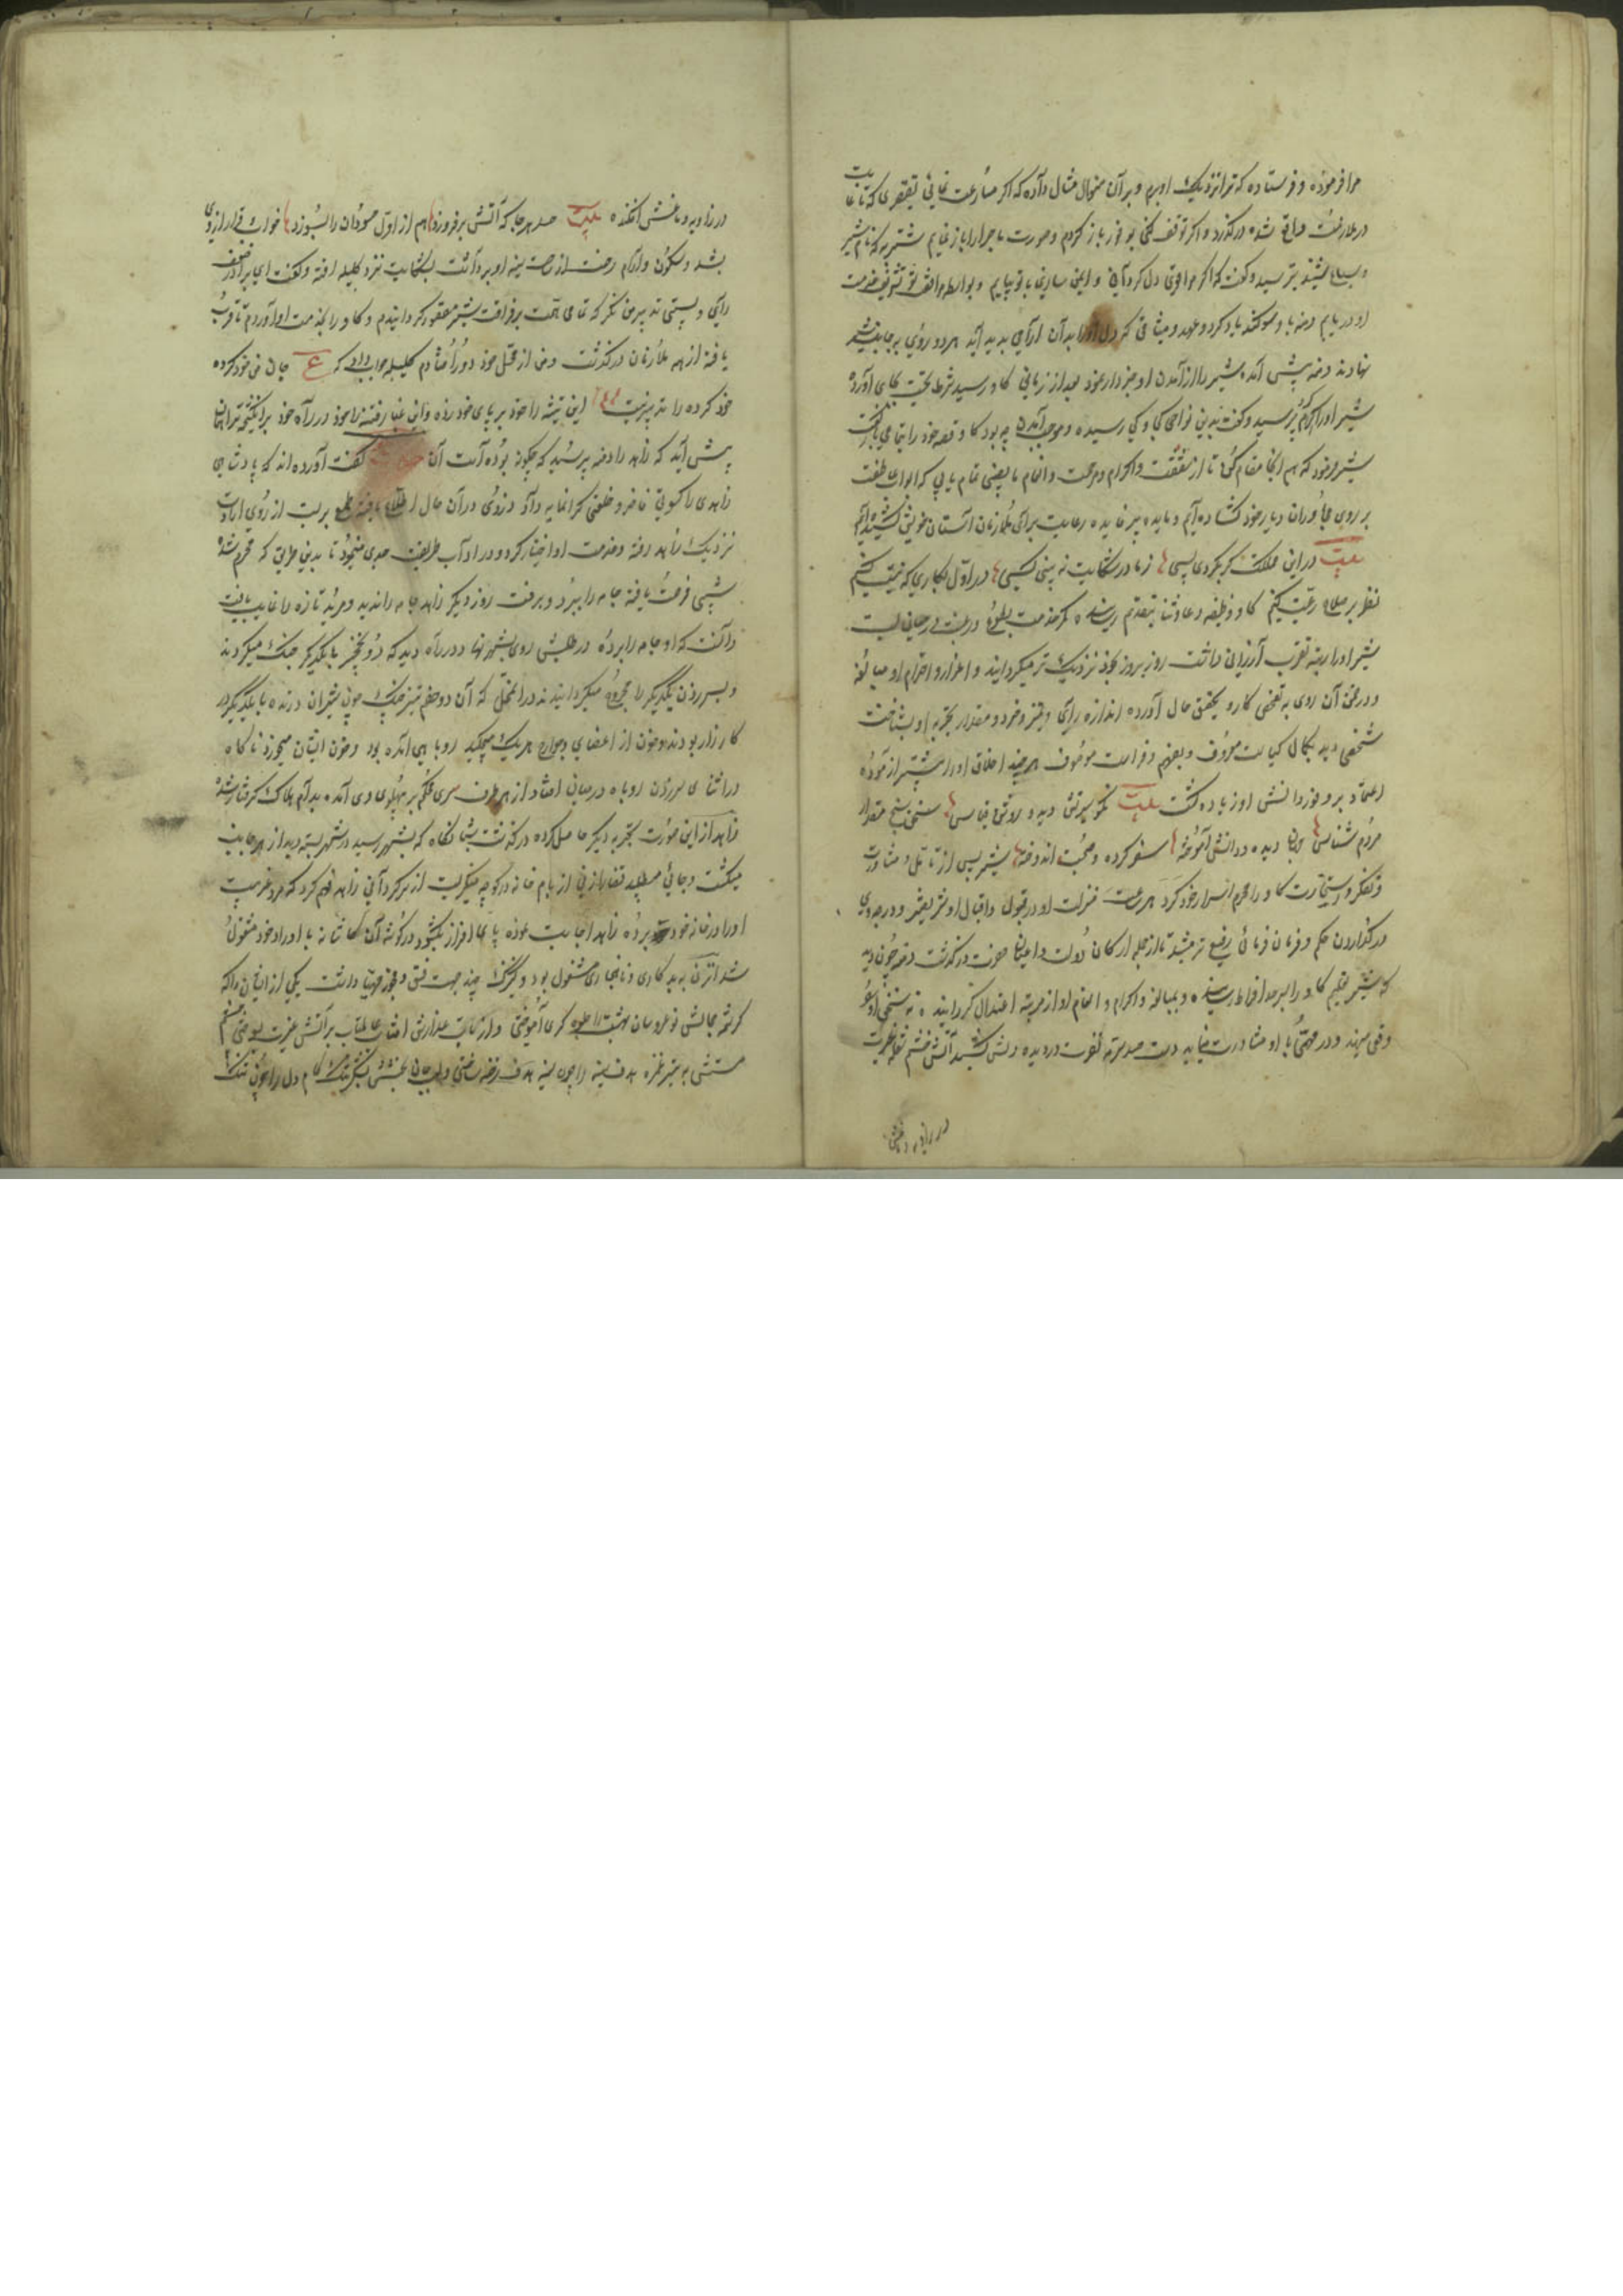 مرا فرموده و فرستاده که ترا نزدیک او برم و بر آن منوال مثال داده که اگر مسارعت نمائی تقصیری که تا غایت
در ملازمت واقع شده درگذرد و اگر توقف کنی بر فور باز گردم و صورت ماجرا را باز نمایم شتربه که نام شیر
و سباع بشنید بترسید و گفت که اگر مرا قوی دل گردانی و ایمن سازی با تو بیایم و بواسطه مرافقت تو شرف خدمت
او دریابم دمنه با وی سوگند یاد کرد و عهد و میثاقی که دل او را بدان آرامی پدید آید هر دو روی بجانب شیر
نهادند دمنه پیش آمد شیر را از آمدن او خبردار نمود بعد از زمانی گاو رسید شرط تحیت بجای آورد
شیر او را گرم پرسید و گفت بدین نواحی کی رسیده و موجب آمدن چه بود گاو قصه خود را بتمامی باز گفت
شیر فرمود که هم اینجا مقام کن تا از شفقت و اکرام و مرحمت و انعام ما نصیبی تمام یابی که ابواب عاطفت
بر روی مجاوران دیار خود گشاده‌ایم و مایده پر فایده رعایت برای ملازمان آستان خویش کشیده‌ایم
بیت در این مملکت گر بگردی بسی ز ما در شکایت نه بینی کسی در اول بکاری که نیت کنیم
نظر بر صلاح رعیت کنیم گاو وظیفه دعا و ثنا بتقدیم رسانیده کمر خدمت بطوع و رغبت بر میان بست
شیر او را رتبه تقرب ارزانی داشت روز بروز بخود نزدیک‌تر میگردانید و اعزاز و احترام او مبالغه
و در ضمن آن روی به تفحص کار و تحقیق حال آورده اندازه رای و تمیز و خرد و مقدار تجربه او بشناخت
شخصی دید بکمال کیاست معروف و بفهم و فراست موصوف هر چند اخلاق او را بیشتر آزموده
اعتماد بر وفور دانش او زیاده گشت بیت نکو سیرتش دید و روشن قیاس سخن سنج مقدار
مردم شناس جهان دیده و دانش آموخته سفر کرده و صحبت اندوخته شیر پس از تامل و مشاورت
و تفکر و استخارت گاو را محرم اسرار خود کرد هر ساعت منزلت او در قبول و اقبال او شریفتر و درجه وی
در گذاردن حکم و فرمان فرمائی رفیع‌تر میشد تا از جمله ارکان دولت و اعیان حضرت درگذشت دمنه چون دید
که شیر تعظیم گاو را بسرحد افراط رسانیده و مبالغه و اکرام و انعام او از مرتبه اعتدال گذرانیده نه سخن او
وقعی مینهد و در مهمی با او مشاورت مینماید دست حسد سرمه غفلت در دیده دلش کشید آتش خشم شعله غیرت
در زاویه دماغش
در زاویه دماغش افکنده بیت حسد هر جا که آتش برفروزد هم از اول حسودان را بسوزد خواب و قرار از وی
بشد و سکون و آرام رخت از ساحت سینه او برداشت بشکایت نزد کلیله رفت و گفت ای برادر ضعف
رای و سستی تدبیر من نگر که تمامی همت بر فراغت شیر مقصور گردانیدم و گاو را بخدمت او آوردم تا قربت
یافته از همه ملازمان درگذشت و من از محل خود دور افتادم کلیله جواب داد که ع جان من خود کرده
خود کرده را تدبیر چیست این تیشه را خود بر پای خود زده و این غبار فتنه را خود در راه خود برانگیختی ترا همان
پیش آید که زاهد را دمنه پرسید که چگونه بوده است آن حکایت گفت آورده‌اند که پادشاهی
زاهدی را کسوتی فاخر و خلعتی گرانمایه داد دزدی در آن حال اطلاع یافته طمع بر بست از روی ارادت
نزدیک زاهد رفته و خدمت او اختیار کرد و در آداب طریقت جدی مینمود تا بدین طریق که محرم شد
شبی فرصت یافته جامه را ببرد و برفت روز دیگر زاهد جامه را ندید و مرید تازه را غایب یافت
دانست که او جامه را برده در طلبش روی بشهر نهاد در راه دید که دو نخچیر با یکدیگر جنگ میکردند
و بسر زدن یکدیگر را مجروح میگردانیدند در آن محل که آن دو خصم تیز جنگ چون شیران درنده با یکدیگر در
کارزار بودند و خون از اعضای و جوارح هر یک میچکید روباهی آمده بود و خون ایشان میخورد ناگاه
در اثنای سر زدن روباه در میان افتاد از هر طرف سری محکم بر پهلوی وی آمده بدام هلاک گرفتار شد
زاهد از این صورت تجربه دیگر حاصل کرده درگذشت شبانگاه که بشهر رسید در شهر بسته دید از هر جانب
میگشت و جائی میطلبید قضا را زنی از بام خانه در کوچه مینگریست از سرگردانی زاهد فهم کرد که مرد غریبست
او را در خانه خود برده زاهد اجابت نموده پای افزار بگشود در گوشه آن کاشانه با اوراد خود مشغول
شد آن زن به بد کاری و نابکاری مشغول بود و کنیزک چند جهت فسق و فجور مهیا داشت یکی از ایشان را که
کرشمه جمالش نوعروسان بهشت را جلوه گری آموختی و از تاب عذارش آفتاب عالمتاب بر آتش غیرت بسوختی چشم
مستش به تیر غمزه هدف سینه را چون سینه هدف رخنه ساختی و لب جان بخشش بشکر تنگ کام دل را چون تنگ